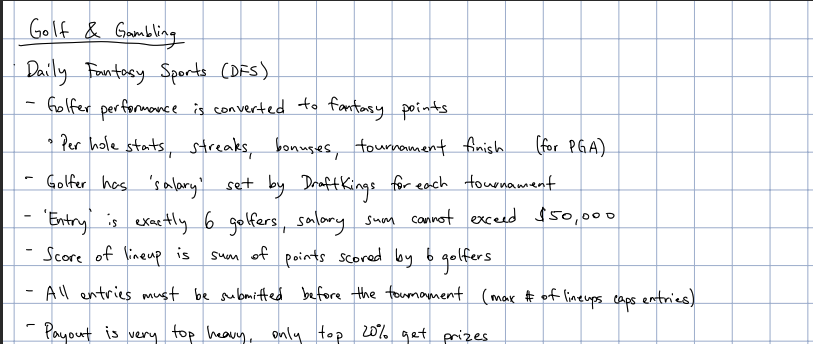 Golf & Gambling
Daily Fantasy Sports (DFS)
- Golfer performance is converted to fantasy points
• Per hole stats, streaks, bonuses, tournament finish (for PGA)
- Golfer has 'salary' set by DraftKings for each tournament
- 'Entry' is exactly 6 golfers, salary sum cannot exceed $50,000
- Score of lineup is sum of points scored by 6 golfers
- All entries must be submitted before the tournament (max # of lineups caps entries)
- Payout is very top heavy, only top 20% get prizes